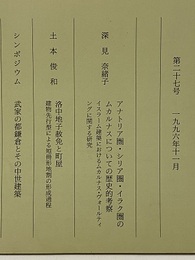 第二十七号　一九九六年十一月
アナトリア圏・シリア圏・イラク圏の
ムカルナスについての歴史的考察
イスラーム建築におけるムカルナス・ヴォールティ
ングに関する研究
深見　奈緒子
洛中地子赦免と町屋
建物先行型による短冊形地割の形成過程
土本　俊和
武家の都鎌倉とその中世建築
シンポジウム